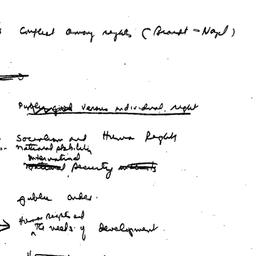 Conflict among rights (Brandt - Nagel)
Public good versus individual right
Socialism and Human Rights
National stability
International
Security
public order.
Human rights and
The needs of development.